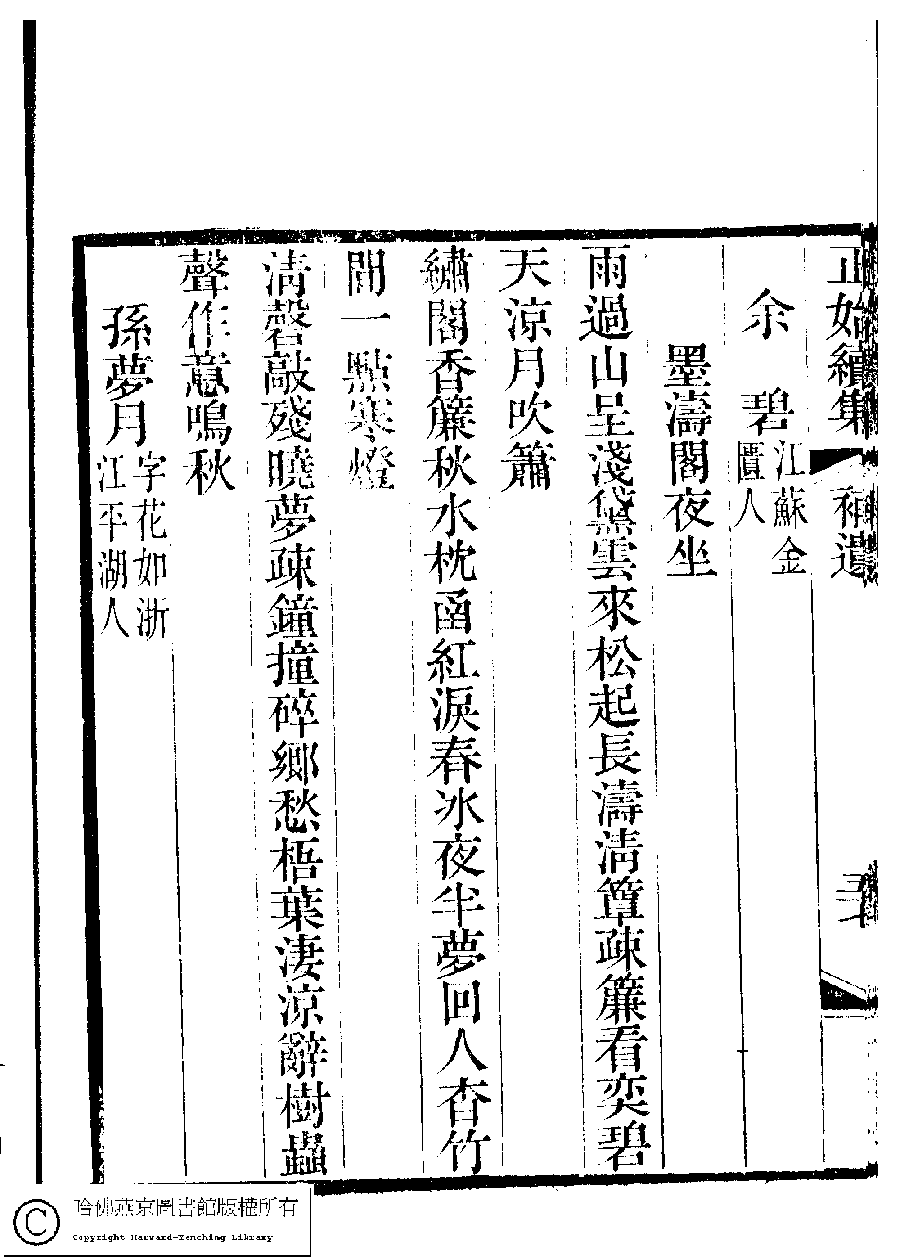 正始續集 補遺
余碧 江蘇金
匱人
墨濤閣夜坐
雨過山呈淺黛雲來松起長濤清簟疎簾看奕碧
天涼月吹簫
繡閣香簾秋水枕函紅淚春冰夜半夢回人杳竹
間一點寒燈
清磬敲殘曉夢疎鐘撞碎鄉愁梧葉淒涼辭樹蟲
聲作意鳴秋
孫夢月 字花如浙
江平湖人
哈佛燕京圖書館版權所有
Copyright Harvard-Yenching Library